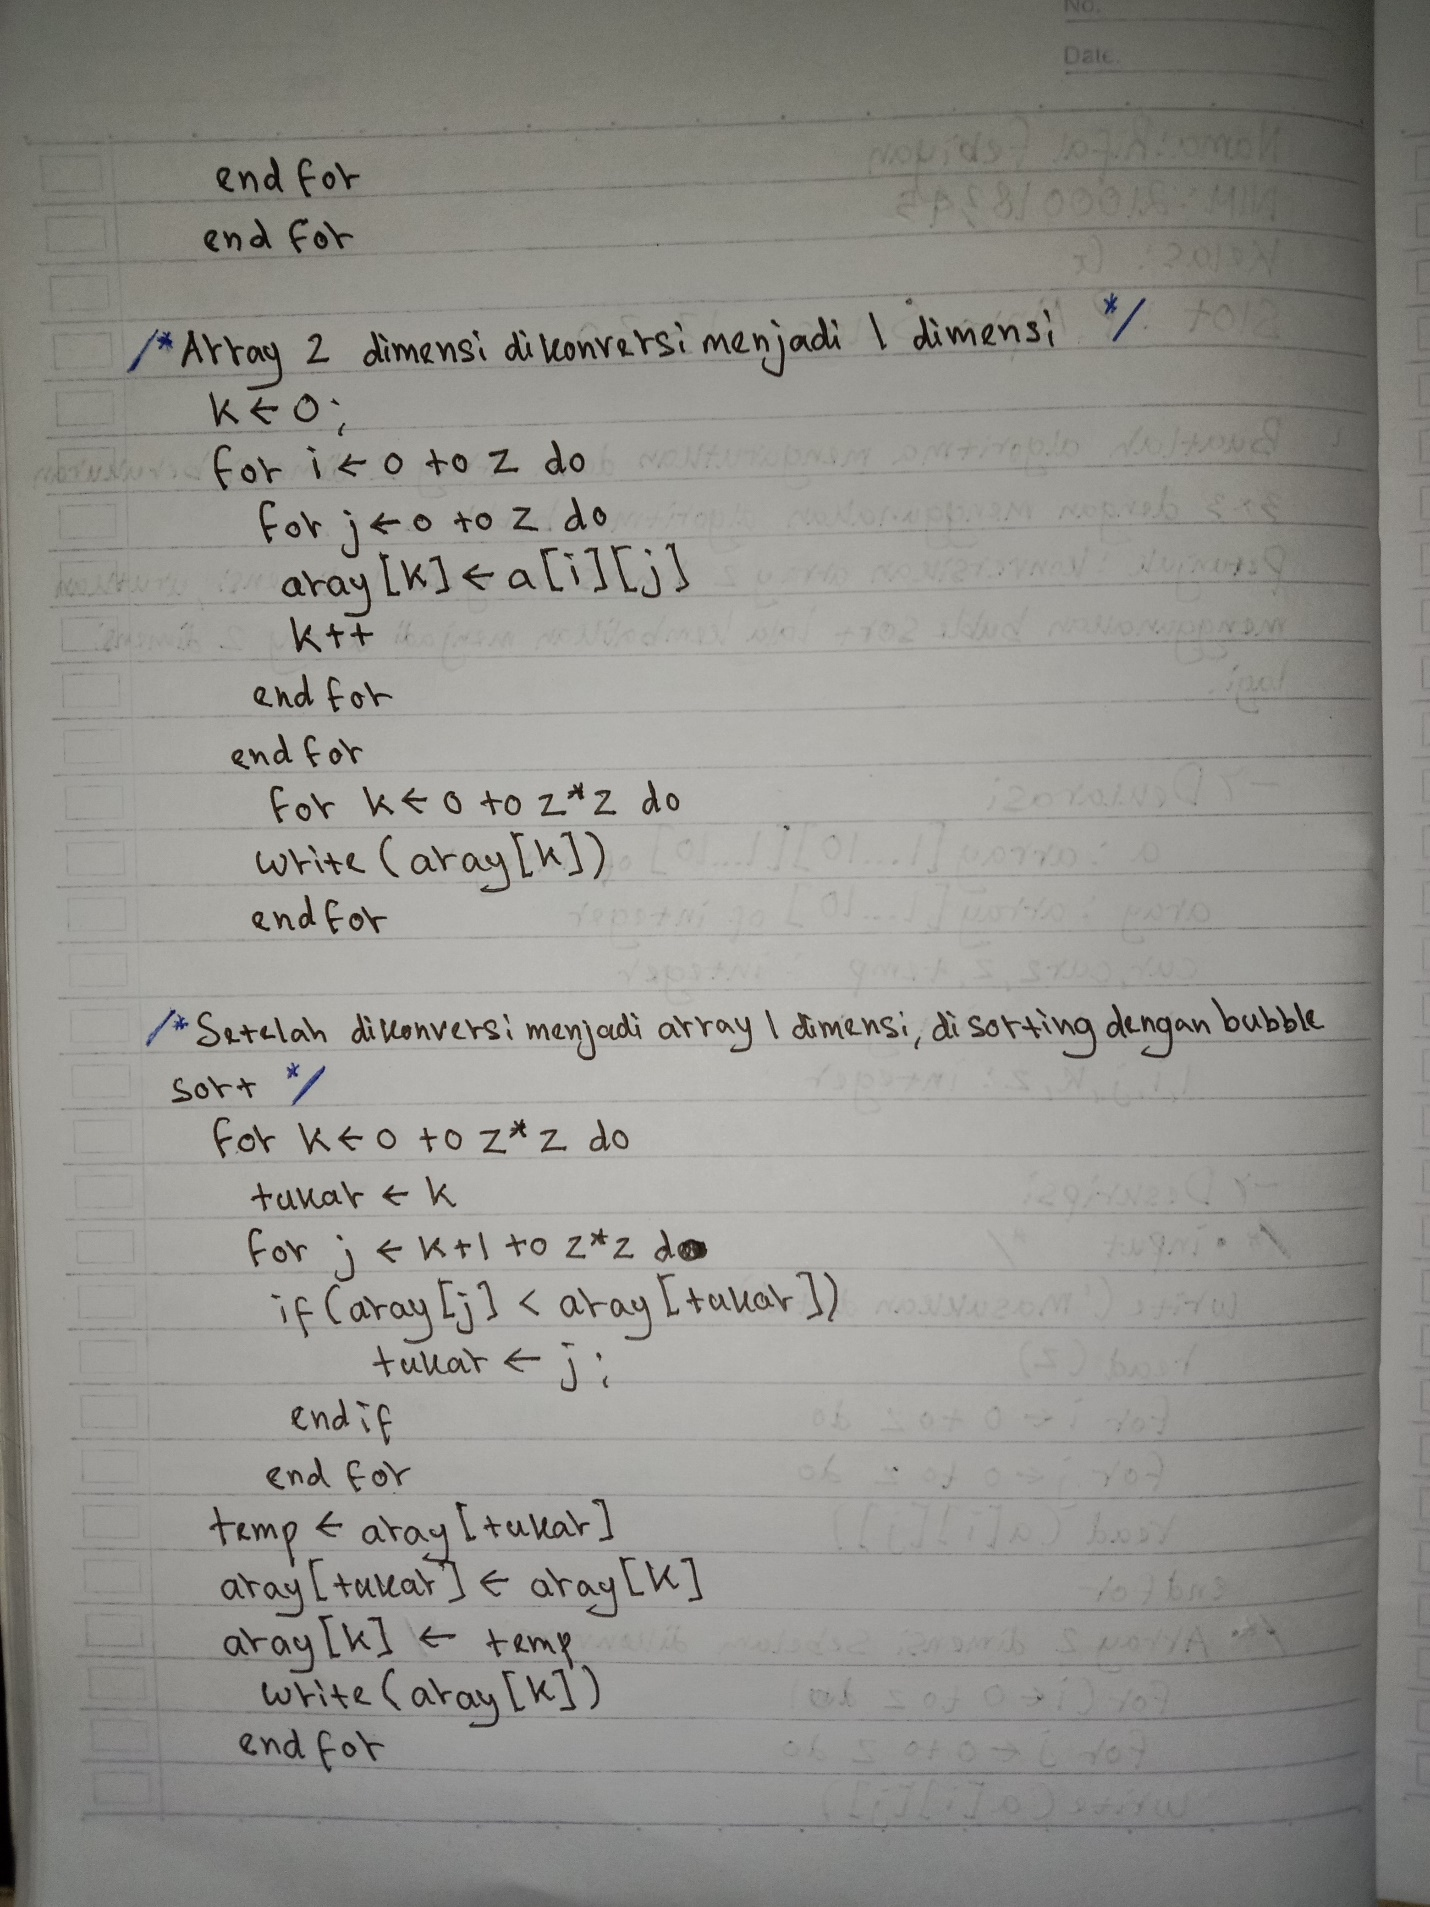 No.
Date.
end for
end for
/* Array 2 dimensi dikonversi menjadi 1 dimensi */
k ← 0;
for i ← 0 to z do
for j ← 0 to z do
aray[k] ← a[i][j]
k++
end for
end for
for k ← 0 to z*z do
write (aray[k])
end for
/* Setelah dikonversi menjadi array 1 dimensi, di sorting dengan bubble
sort */
for k ← 0 to z*z do
tukar ← k
for j ← k+1 to z*z do
if (aray[j] < aray[tukar])
tukar ← j;
end if
end for
temp ← aray[tukar]
aray[tukar] ← aray[k]
aray[k] ← temp
write (aray[k])
end for